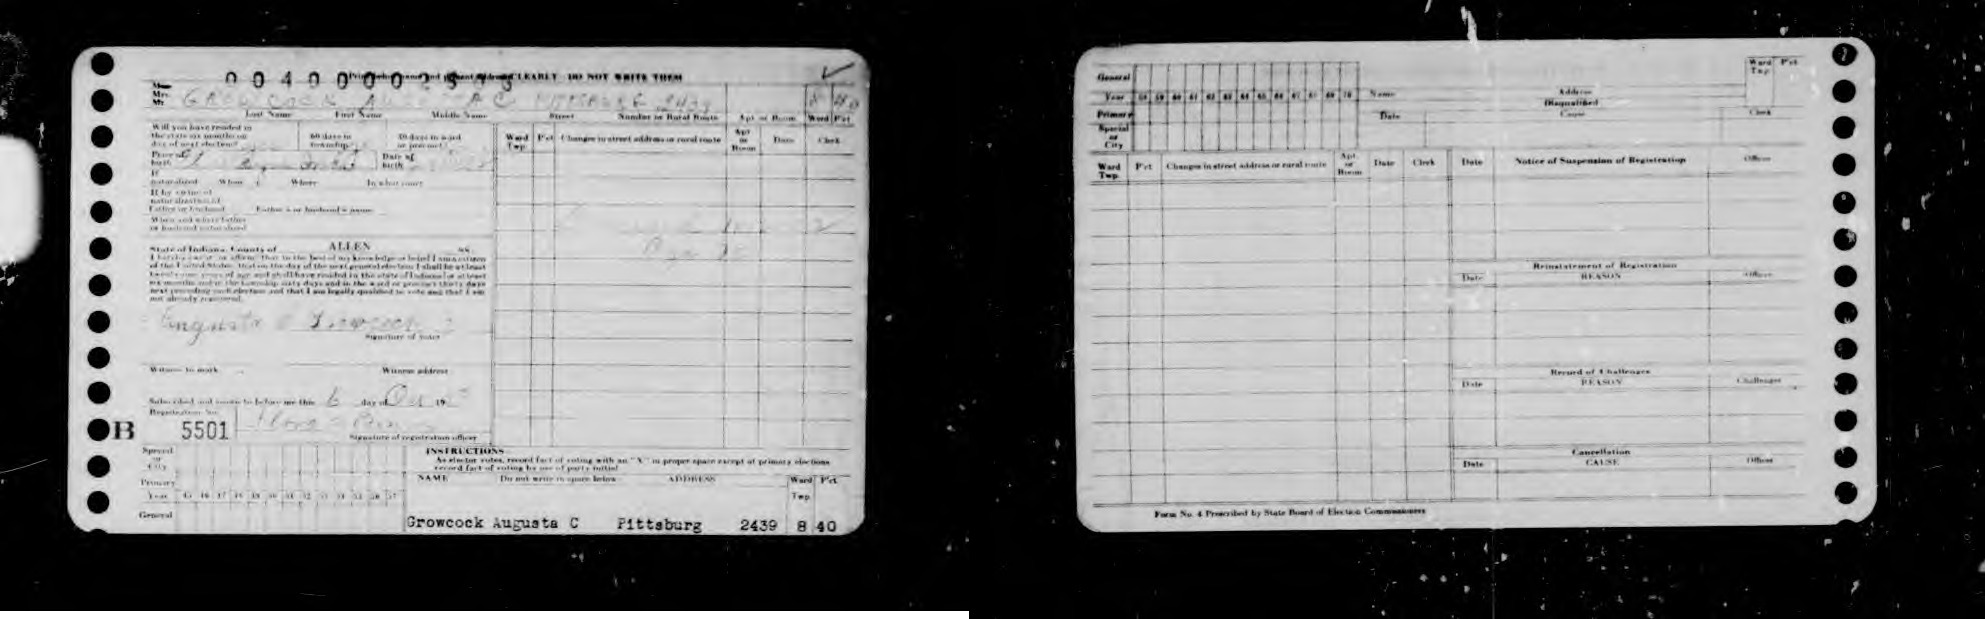 00400002573
CLEARLY DO NOT WRITE THEM
Mrs
Mr GROWCOCK AUGUSTA C PITTSBURG 2439 8 40
Last Name First Name Middle Name Street Number or Rural Route Apt or Room Ward Pct
Will you have resided in
the state six months on
day of next election?
60 days in
township
30 days in ward
or precinct
Ward
Twp
Pct Changes in street address or rural route Apt
or
Room
Date Clerk
Place of
birth
Date of
birth
If
naturalized When Where In what court
If by virtue of
naturalization of
Father or husband Father's or husband's name
When and where father
or husband naturalized
State of Indiana, County of ALLEN ss.
I hereby swear or affirm that to the best of my knowledge or belief I am a citizen
of the United States; that on the day of the next general election I shall be at least
twenty-one years of age and shall have resided in the state of Indiana for at least
six months and in the township sixty days and in the ward or precinct thirty days
next preceding such election and that I am legally qualified to vote and that I am
not already registered.
Augusta C Growcock
Signature of voter
Witness to mark Witness address
Subscribed and sworn to before me this 6 day of 19
Registration No.
B 5501
Signature of registration officer
Special
or
City
Primary
Year 45 46 47 48 49 50 51 52 53 54 55 56 57
General
INSTRUCTIONS
As elector votes, record fact of voting with an "X" in proper space except at primary elections
record fact of voting by use of party initial
NAME Do not write in space below ADDRESS Ward Pct
Twp
Growcock Augusta C Pittsburg 2439 8 40
General
Year 58 59 60 61 62 63 64 65 66 67 68 69 70
Primary
Special
or
City
Name Address
Ward
Twp
Pct
Disqualified
Date Cause Clerk
Ward
Twp
Pct Changes in street address or rural route Apt
or
Room
Date Clerk
Date Notice of Suspension of Registration Officer
Reinstatement of Registration
Date REASON Officer
Record of Challenges
Date REASON Challenger
Cancellation
Date CAUSE Officer
Form No. 4 Prescribed by State Board of Election Commissioners